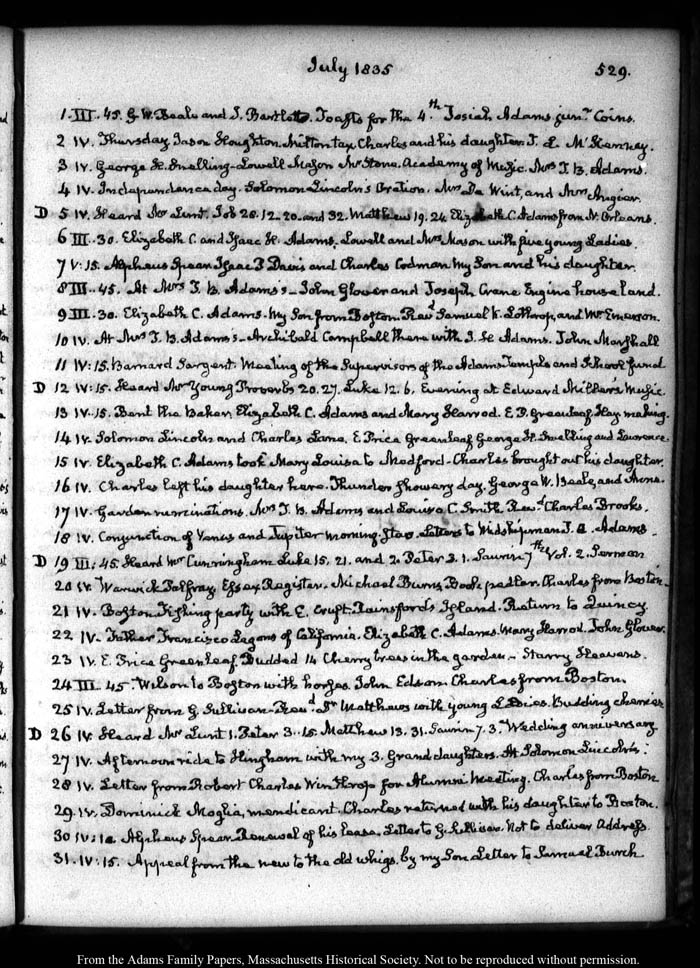 July 1835 529.
1. III. 45. G W. Beale and J. Bartlett. Toasts for the 4.th Josiah Adams junr. Coins.
2 IV. Thursday Jason Houghton. Milton tax Charles and his daughter. J. L. McKenney.
3 IV. George H. Snelling. Lowell Mason Mr Stone. Academy of Music. Mrs T. B. Adams.
4 IV. Independence day. Solomon Lincoln's Oration. Mrs De Wint, and Mrs Angier.
D 5 IV. Heard Mr Lunt. Job 20. 12. 20. and 32. Matthew 19. 24. Elizabeth C. Adams from N. Orleans.
6 III. 30. Elizabeth C. and Isaac H. Adams. Lowell and Mrs Mason with five young Ladies.
7 V: 15. Alpheus Spear Isaac P Davis and Charles Codman My Son and his daughter.
8 III. 45. At Mrs T. B. Adams's. John Glover and Joseph Crane Engine house land.
9 III. 30. Elizabeth C. Adams. My Son from Boston. Revd. Samuel K. Lothrop, and Mr Emerson.
10 IV. At Mrs T. B. Adams's. Archibald Campbell there with I. H. Adams. John Marshall
11 IV: 15. Barnard Sargent. Meeting of the Supervisors of the Adams Temple and School fund
D 12 IV: 15. Heard Mr Young Proverbs 20. 27. Luke 12. 6. Evening at Edward Miller's Music.
13 IV. 15. Bent the Baker. Elizabeth C. Adams and Mary Harrod. E P. Greenleaf. Hay making.
14 IV. Solomon Lincoln and Charles Lane. E Price Greenleaf George H. Snelling and Lawrence.
15 IV. Elizabeth C. Adams took Mary Louisa to Medford. Charles brought out his daughter.
16 IV. Charles left his daughter here. Thunder showery day. George W. Beale, and Mrs.
17 IV. Garden ruminations. Mrs T. B. Adams and Louisa C. Smith Revd. Charles Brooks.
18 IV. Conjunction of Venus and Jupiter morning Star. Letters to Midshipman J. Q. Adams.
D 19 III: 45. Heard Mr Cunningham Luke 15. 21. and 2. Peter 3. 1. Saurin 7th. Vol. 2. Sermon
20 IV. Warwick Palfray, Essex Register. Michael Burns Book pedler. Charles from Boston.
21 IV. Boston Fishing party with E. Cruft. Rainsford's Island. Return to Quincy.
22 IV. Father Francisco Lagans of California. Elizabeth C. Adams. Mary Harrod. John Glover.
23 IV. E. Price Greenleaf. Budded 14 Cherry trees in the garden. Starry Heavens.
24 III. 45. Wilson to Boston with horses. John Edson. Charles from Boston.
25 IV. Letter from G Sullivan. Revd. Dr Matthews with young Ladies. Budding cherries
D 26 IV. Heard Mr Lunt 1. Peter 3. 15. Matthew 13. 31. Saurin 7. 3. Wedding anniversary
27 IV. Afternoon ride to Hingham with my 3. Granddaughters. At Solomon Lincoln's.
28 IV. Letter from Robert Charles Winthrop for Alumni Meeting. Charles from Boston
29. IV. Dominick Maglia, mendicant. Charles returned with his daughter to Boston.
30 IV: 10. Alpheus Spear Renewal of his lease. Letter to G. Sullivan. Not to deliver Address.
31. IV: 15. Appeal from the new to the old whigs. by my Son Letter to Samuel Burch
From the Adams Family Papers, Massachusetts Historical Society. Not to be reproduced without permission.